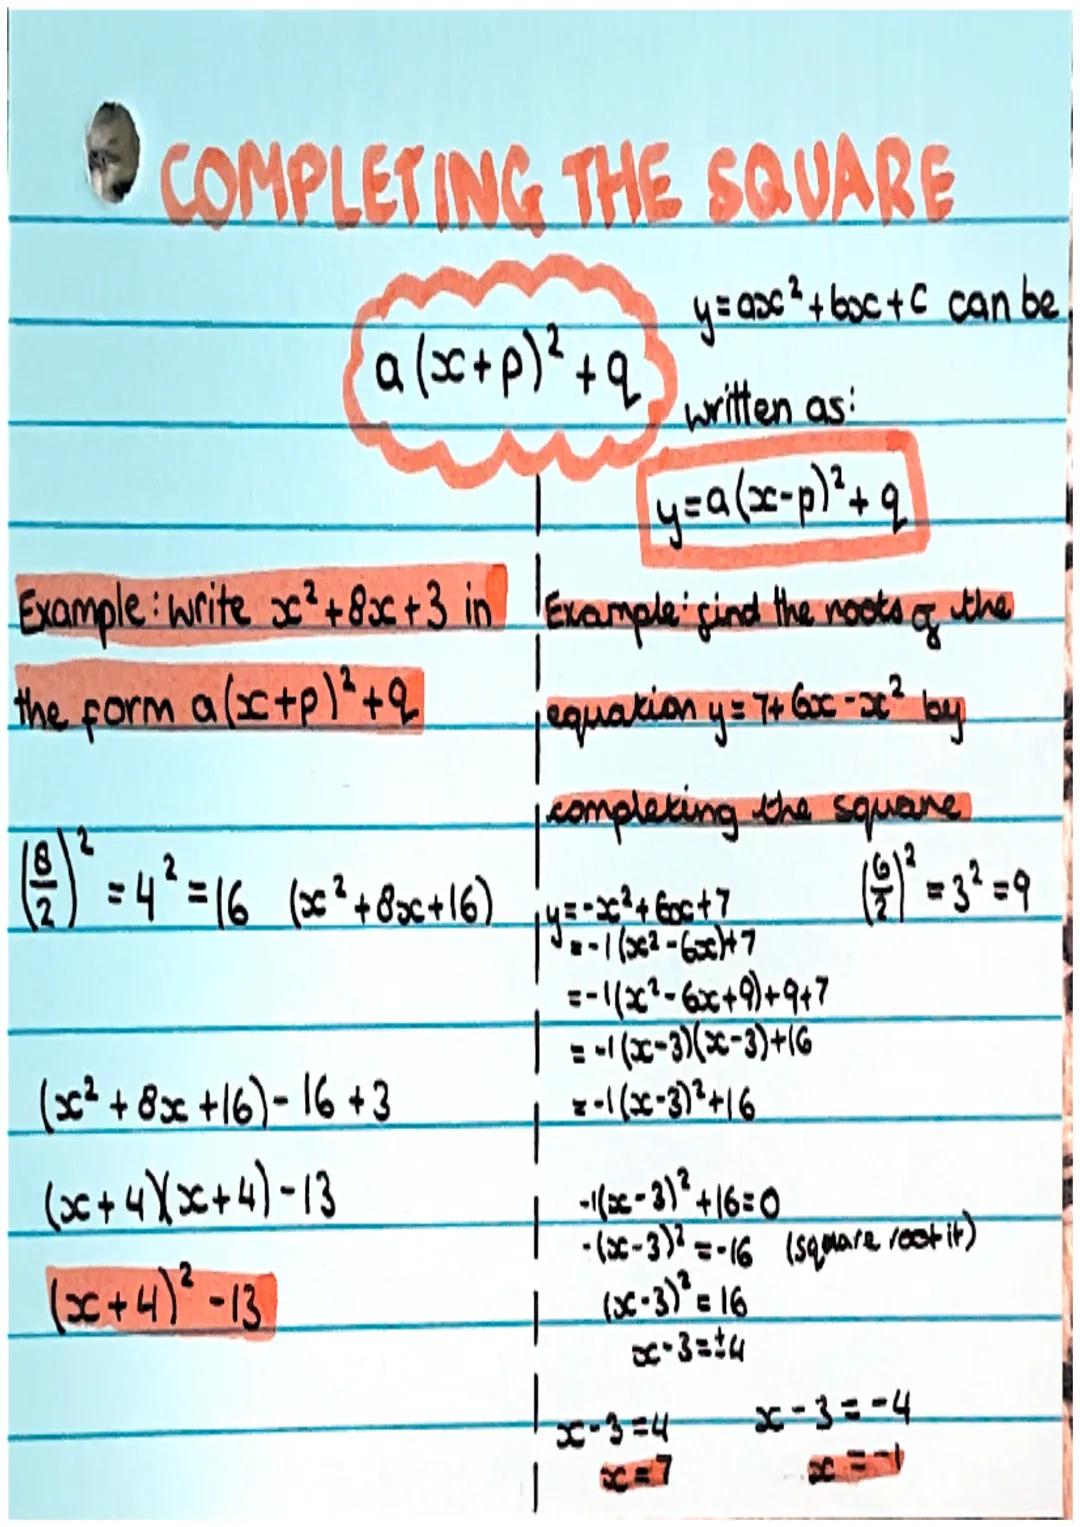 COMPLETING THE SQUARE
a(x+p)²+q
y=ax²+bx+c can be
written as:
y=a(x-p)²+q
Example: write x²+8x+3 in
the form a(x+p)²+q
(8/2)² = 4² = 16 (x²+8x+16)
(x²+8x+16)-16+3
(x+4)(x+4)-13
(x+4)²-13
Example: find the roots of the
equation y=7+6x-x² by
completing the square
(6/2)² = 3² = 9
y=-x²+6x+7
=-1(x²-6x)+7
=-1(x²-6x+9)+9+7
=-1(x-3)(x-3)+16
=-1(x-3)²+16
-1(x-3)²+16=0
-(x-3)²=-16 (square root it)
(x-3)²=16
x-3=±4
x-3=4 x-3=-4
x=7 x=-1